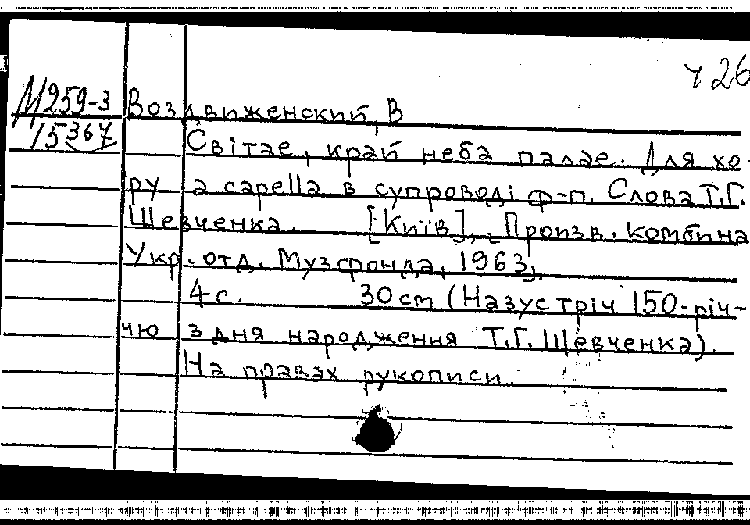 ч 26
М259-3 Воздвиженский, В
15367 Світає, край неба палає. Для хо-
ру а capella в супроводі ф-п. Слова Т.Г.
Шевченка. [Київ], Произв. комбина
Укр. отд. Музфонда, 1963,
4 с. 30 cm (Назустріч 150-річ-
чю з дня народження Т.Г. Шевченка).
На правах рукописи.